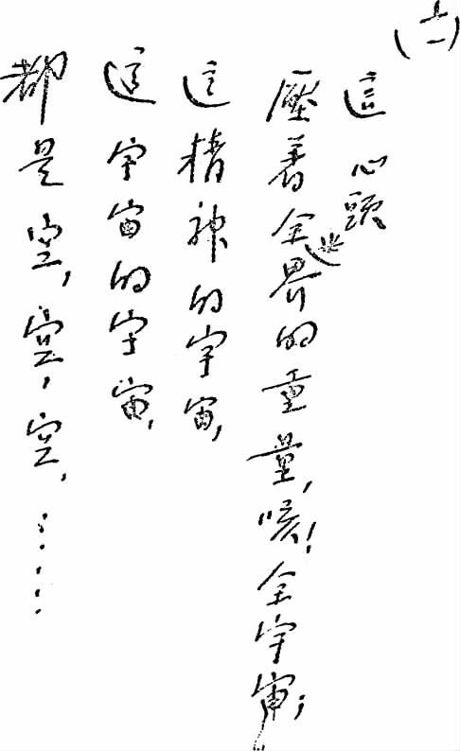 (十一)
這心頭
壓著全世界的重量,咳!全宇宙;
這精神的宇宙,
這宇宙的宇宙,
都是空,空,空,……